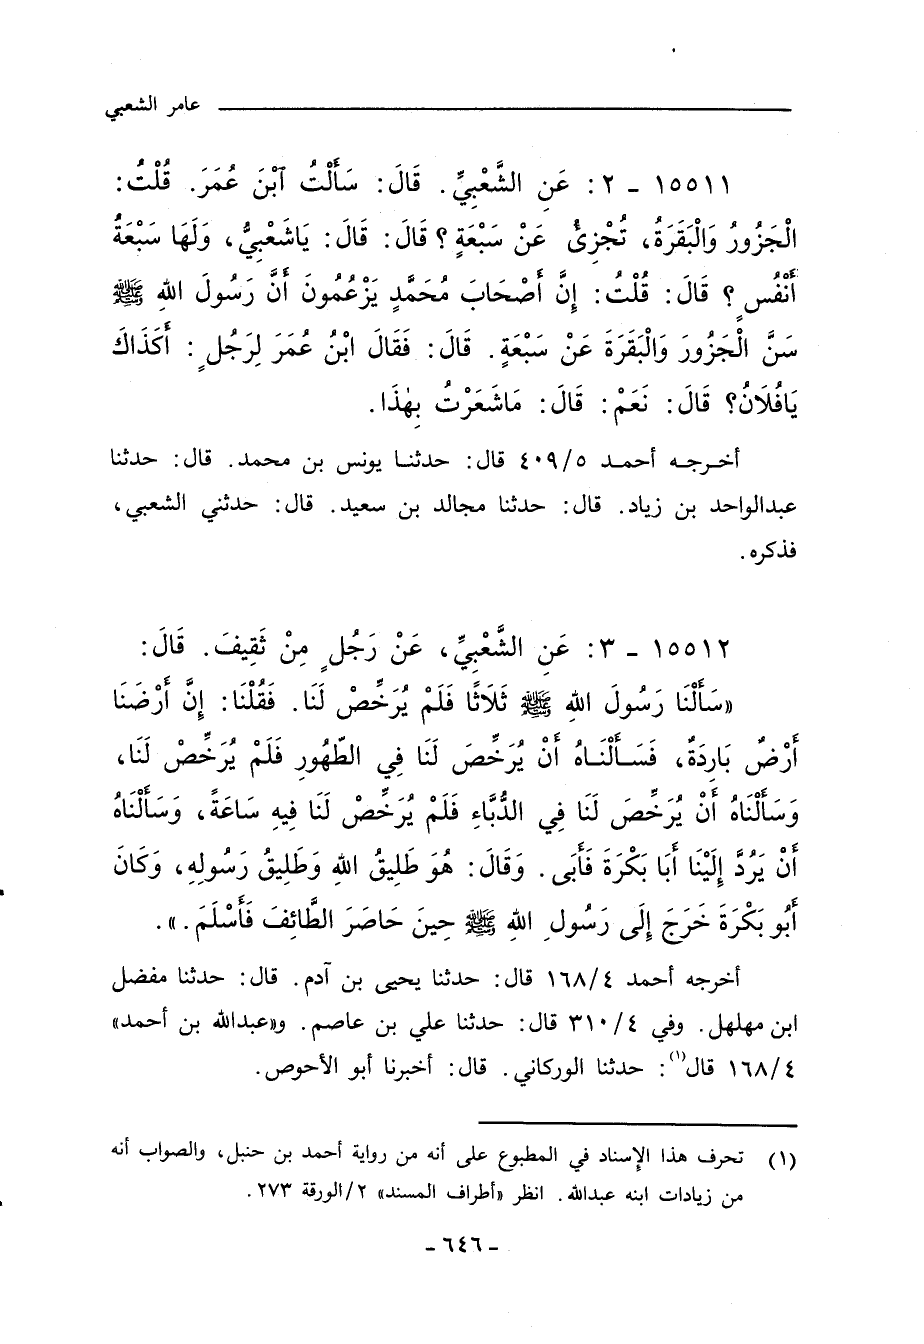 عامر الشعبي
١٥٥١١ - ٢: عَنِ الشَّعْبِيِّ. قَالَ: سَأَلْتُ ٱبْنَ عُمَرَ. قُلْتُ:
الْجَزُورُ وَالْبَقَرَةُ، تُجْزِئُ عَنْ سَبْعَةٍ؟ قَالَ: قَالَ: يَاشَعْبِيُّ، وَلَهَا سَبْعَةُ
أَنْفُسٍ؟ قَالَ: قُلْتُ: إِنَّ أَصْحَابَ مُحَمَّدٍ يَزْعُمُونَ أَنَّ رَسُولَ اللهِ ﷺ
سَنَّ الْجَزُورَ وَالْبَقَرَةَ عَنْ سَبْعَةٍ. قَالَ: فَقَالَ ابْنُ عُمَرَ لِرَجُلٍ: أَكَذَاكَ
يَافُلَانُ؟ قَالَ: نَعَمْ: قَالَ: مَاشَعَرْتُ بِهٰذَا.
أخرجه أحمد ٤٠٩/٥ قال: حدثنا يونس بن محمد. قال: حدثنا
عبدالواحد بن زياد. قال: حدثنا مجالد بن سعيد. قال: حدثني الشعبي،
فذكره.
١٥٥١٢ - ٣: عَنِ الشَّعْبِيِّ، عَنْ رَجُلٍ مِنْ ثَقِيفَ. قَالَ:
«سَأَلْنَا رَسُولَ اللهِ ﷺ ثَلَاثًا فَلَمْ يُرَخِّصْ لَنَا. فَقُلْنَا: إِنَّ أَرْضَنَا
أَرْضٌ بَارِدَةٌ، فَسَأَلْنَاهُ أَنْ يُرَخِّصَ لَنَا فِي الطَّهُورِ فَلَمْ يُرَخِّصْ لَنَا،
وَسَأَلْنَاهُ أَنْ يُرَخِّصَ لَنَا فِي الدُّبَّاءِ فَلَمْ يُرَخِّصْ لَنَا فِيهِ سَاعَةً، وَسَأَلْنَاهُ
أَنْ يَرُدَّ إِلَيْنَا أَبَا بَكْرَةَ فَأَبَى. وَقَالَ: هُوَ طَلِيقُ اللهِ وَطَلِيقُ رَسُولِهِ، وَكَانَ
أَبُو بَكْرَةَ خَرَجَ إِلَى رَسُولِ اللهِ ﷺ حِينَ حَاصَرَ الطَّائِفَ فَأَسْلَمَ.».
أخرجه أحمد ١٦٨/٤ قال: حدثنا يحيى بن آدم. قال: حدثنا مفضل
ابن مهلهل. وفي ٣١٠/٤ قال: حدثنا علي بن عاصم. و«عبدالله بن أحمد»
١٦٨/٤ قال(١): حدثنا الوركاني. قال: أخبرنا أبو الأحوص.
(١) تحرف هذا الإسناد في المطبوع على أنه من رواية أحمد بن حنبل، والصواب أنه
من زيادات ابنه عبدالله. انظر «أطراف المسند» ٢/الورقة ٢٧٣.
- ٦٤٦ -